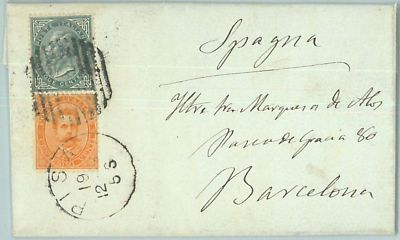 Spagna
Iltre Sra Marquesa de Alos
Paseo de Gracia 80
Barcelona
PISA
19
12